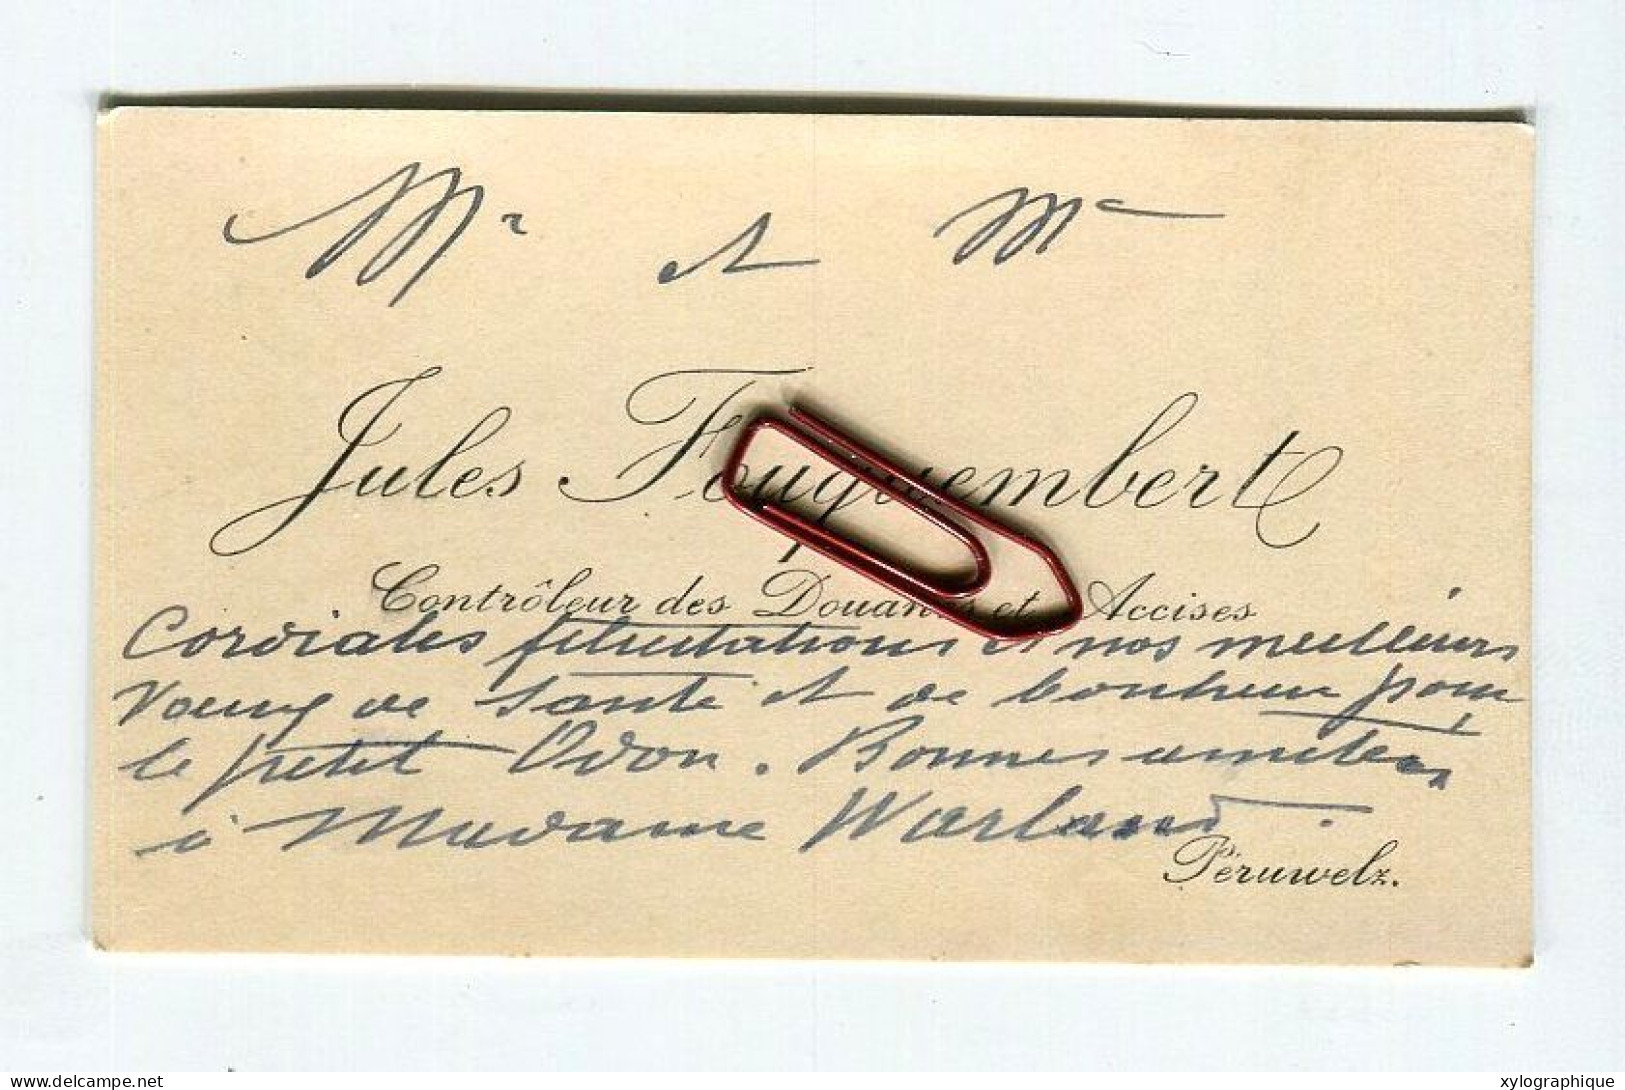 Mr et Me
Jules Fouquembert
Contrôleur des Douanes et Accises
Cordiales félicitations et nos meilleurs
voeux de santé et de bonheur pour
le petit Odon. Bonnes amitiés
à Madame Warland.
Péruwelz.
delcampe.net
xylographique